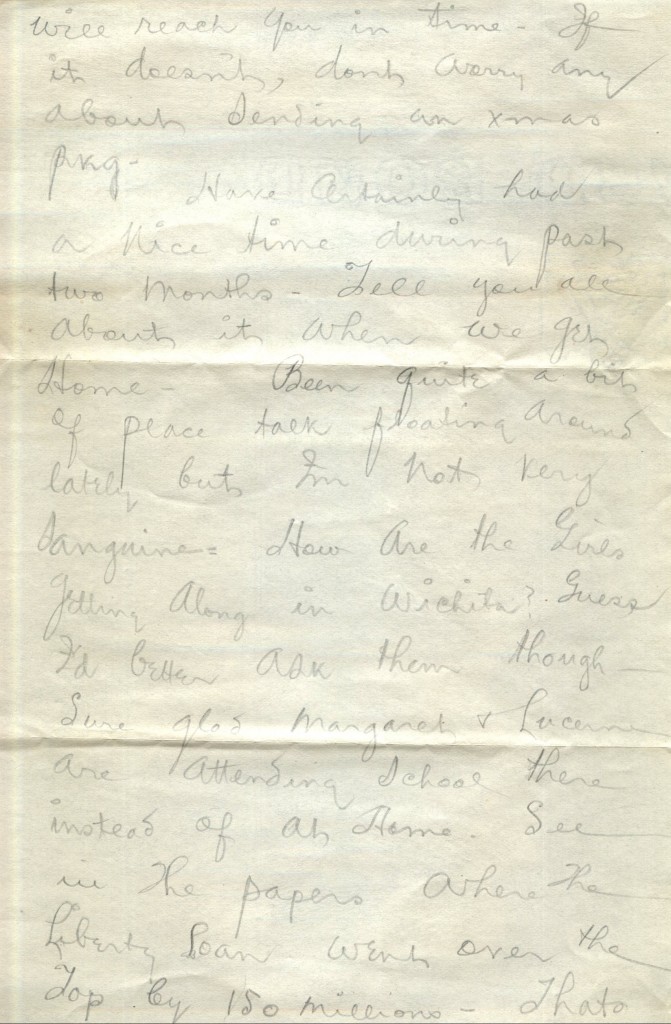 will reach you in time - If
it doesn't, dont worry any
about sending an xmas
pkg -
Have Certainly had
a Nice time during past
two Months - Tell you all
About it When we get
Home - Been quite a bit
of peace talk floating Around
lately but I'm Not Very
Sanguine = How Are the Girls
Getting Along in Wichita? Guess
I'd better Ask them though -
Sure glad Margaret & Lucerne
Are Attending School There
instead of At Home. See
in The papers Where The
Liberty Loan Went over the
Top by 150 millions - Thats